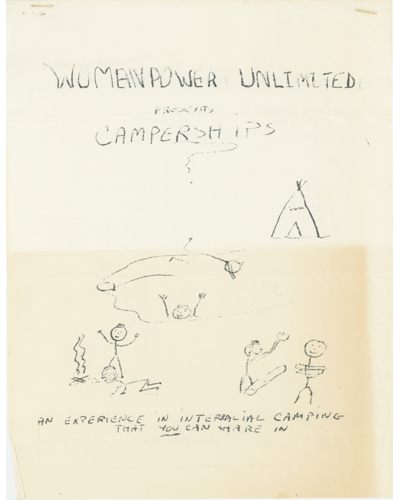 WOMANPOWER UNLIMITED
PRESENTS
CAMPERSHIPS
AN EXPERIENCE IN INTERRACIAL CAMPING
THAT YOU CAN SHARE IN